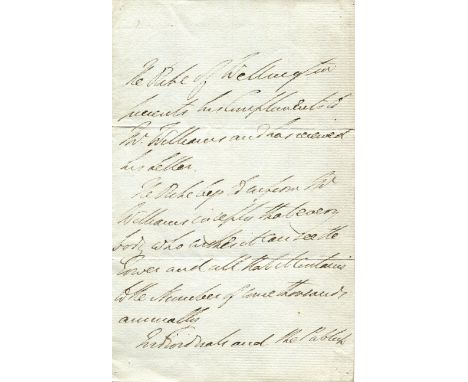 The Duke of Wellington
presents his Compliments to
Mr. Williams and has received
his letter.
The Duke begs to inform Mr
Williams that every
body who wishes it can see the
Tower and all that it contains
to the Number of some thousands
annually
Individuals and the Publick